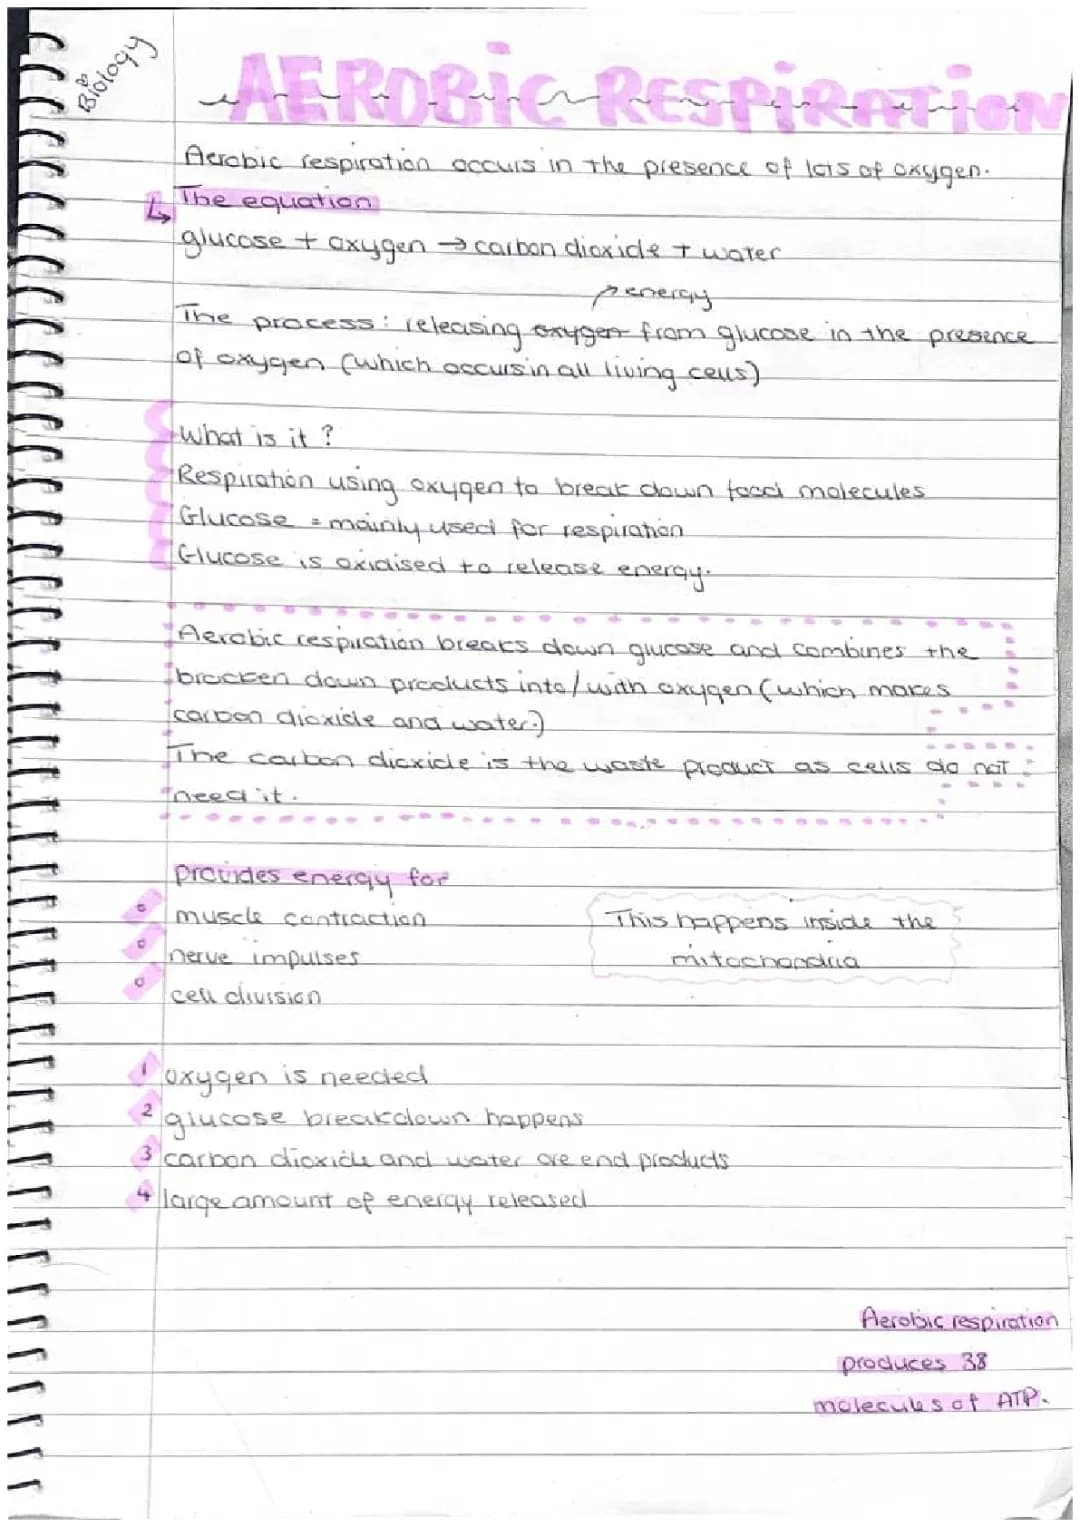 Biology
AEROBIC RESPIRATION
Aerobic respiration occurs in the presence of lots of oxygen.
The equation
glucose + oxygen → carbon dioxide + water
energy
The process: releasing oxygen from glucose in the presence
of oxygen (which occurs in all living cells)
What is it?
Respiration using oxygen to break down food molecules
Glucose = mainly used for respiration
Glucose is oxidised to release energy.
Aerobic respiration breaks down glucose and combines the
brocken down products into/with oxygen (which makes
carbon dioxide and water.)
The carbon dioxide is the waste product as cells do not
need it.
provides energy for
muscle contraction
nerve impulses
cell division
This happens inside the
mitochondria
1 oxygen is needed
2 glucose breakdown happens
3 carbon dioxide and water are end products
4 large amount of energy released
Aerobic respiration
produces 38
molecules of ATP.